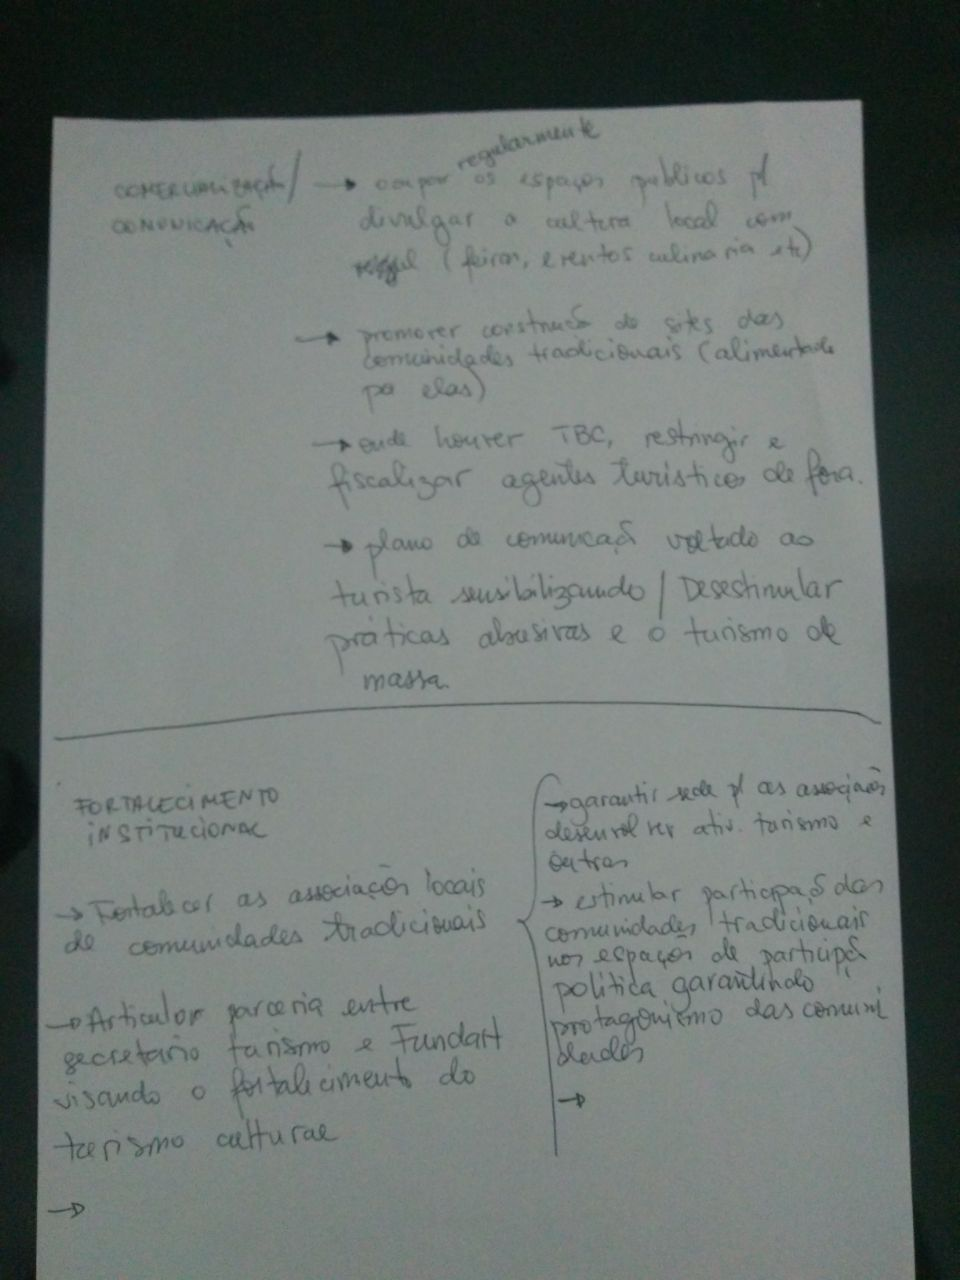 COMERCIALIZAÇÃO/
COMUNICAÇÃO
regularmente
→ ocupar os espaços públicos p/
divulgar a cultura local com
(feiras, eventos culinaria etc)
→ promover construçã de sites das
comunidades tradicionais (alimentado
po elas)
→ onde houver TBC, restringir e
fiscalizar agentes turísticos de fora.
→ plano de comunicaçã voltado ao
turista sensibilizando / Desestimular
práticas abusivas e o turismo de
massa.
FORTALECIMENTO
INSTITUCIONAL
→ Fortalecer as associações locais
de comunidades tradicionais
→ Articular parceria entre
secretario turismo e Fundart
visando o fortalecimento do
turismo cultural
→
→ garantir sede p/ as associações
desenvolver ativ. turismo e
outras
→ estimular participaçã das
comunidades tradicionais
nos espaços de participçã
política garantindo
protagonismo das comuni
dades
→